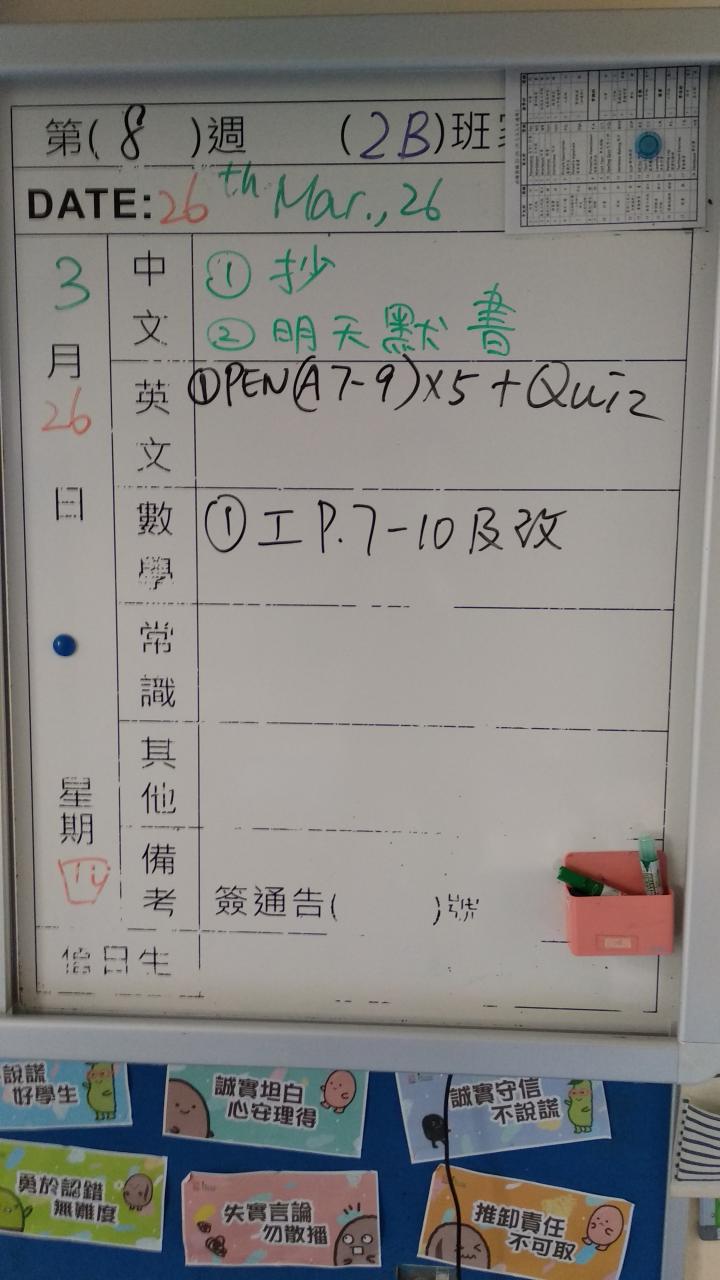 第( 8 )週 (2B)班
DATE: 26th Mar., 26
3月26日
星期四
中文
① 抄
② 明天默書
英文
① PEN(A7-9)×5 + Quiz
數學
① 工 P.7-10及改
常識
其他
備考
簽通告( )號
值日生
說謊
好學生
誠實坦白
心安理得
誠實守信
不說謊
勇於認錯
無難度
失實言論
勿散播
推卸責任
不可取